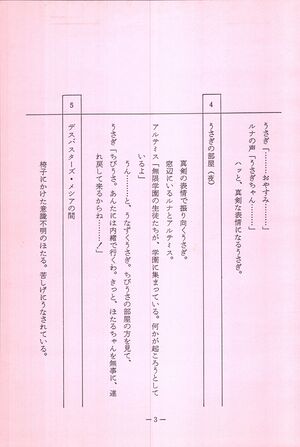 うさぎ「……おやすみ……」
ルナの声「うさぎちゃん……」
ハッと、真剣な表情になるうさぎ。
4
うさぎの部屋(夜)
真剣の表情で振り向くうさぎ。
窓辺にいるルナとアルテミス。
アルテミス「無限学園の生徒たちが、学園に集まっている。何かが起ころうとして
いるよ」
うん……と、うなずくうさぎ。ちびうさの部屋の方を見て、
うさぎ「ちびうさ。あんたには内緒で行くわ。きっと、ほたるちゃんを無事に、連
れ戻して来るからね……！」
5
デスバスターズ・メシアの間
椅子にかけた意識不明のほたる。苦しげにうなされている。
－3－